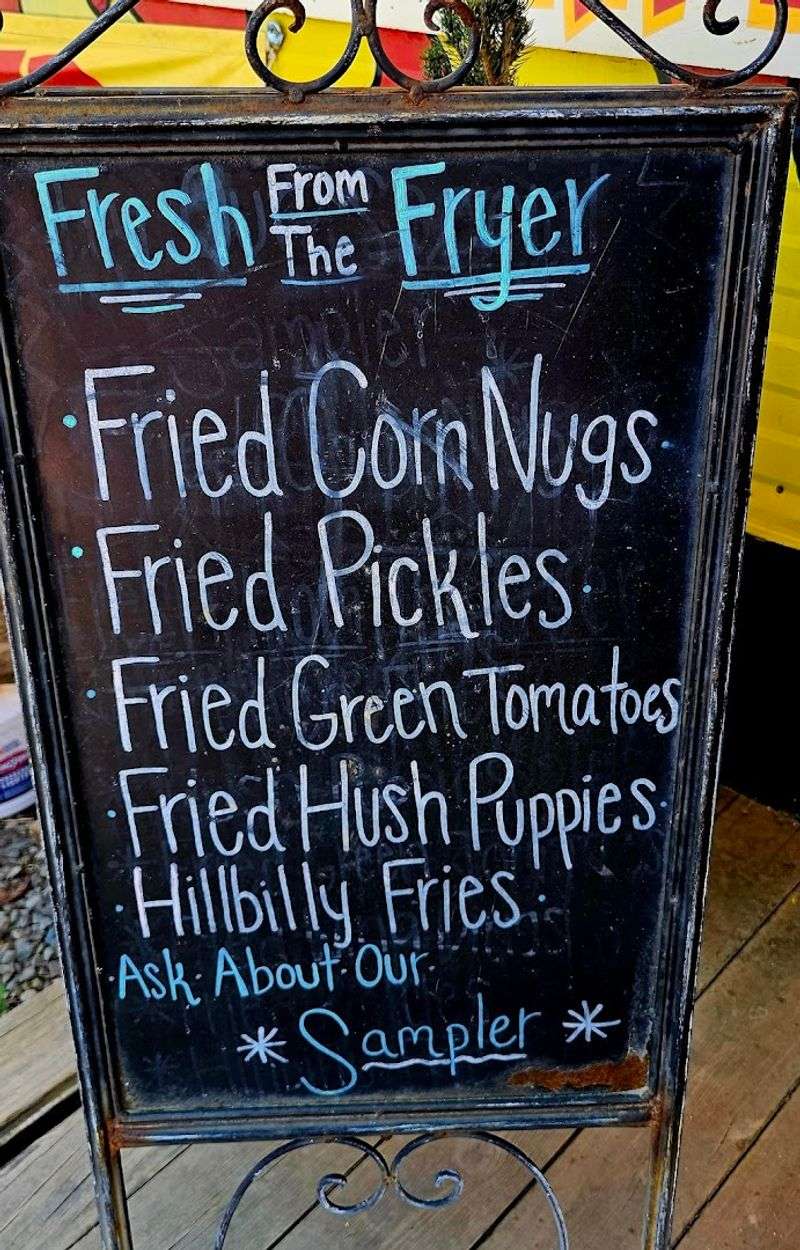 Fresh From The Fryer
· Fried Corn Nugs ·
· Fried Pickles ·
· Fried Green Tomatoes
· Fried Hush Puppies ·
· Hillbilly Fries ·
· Ask · About · Our ·
* Sampler *